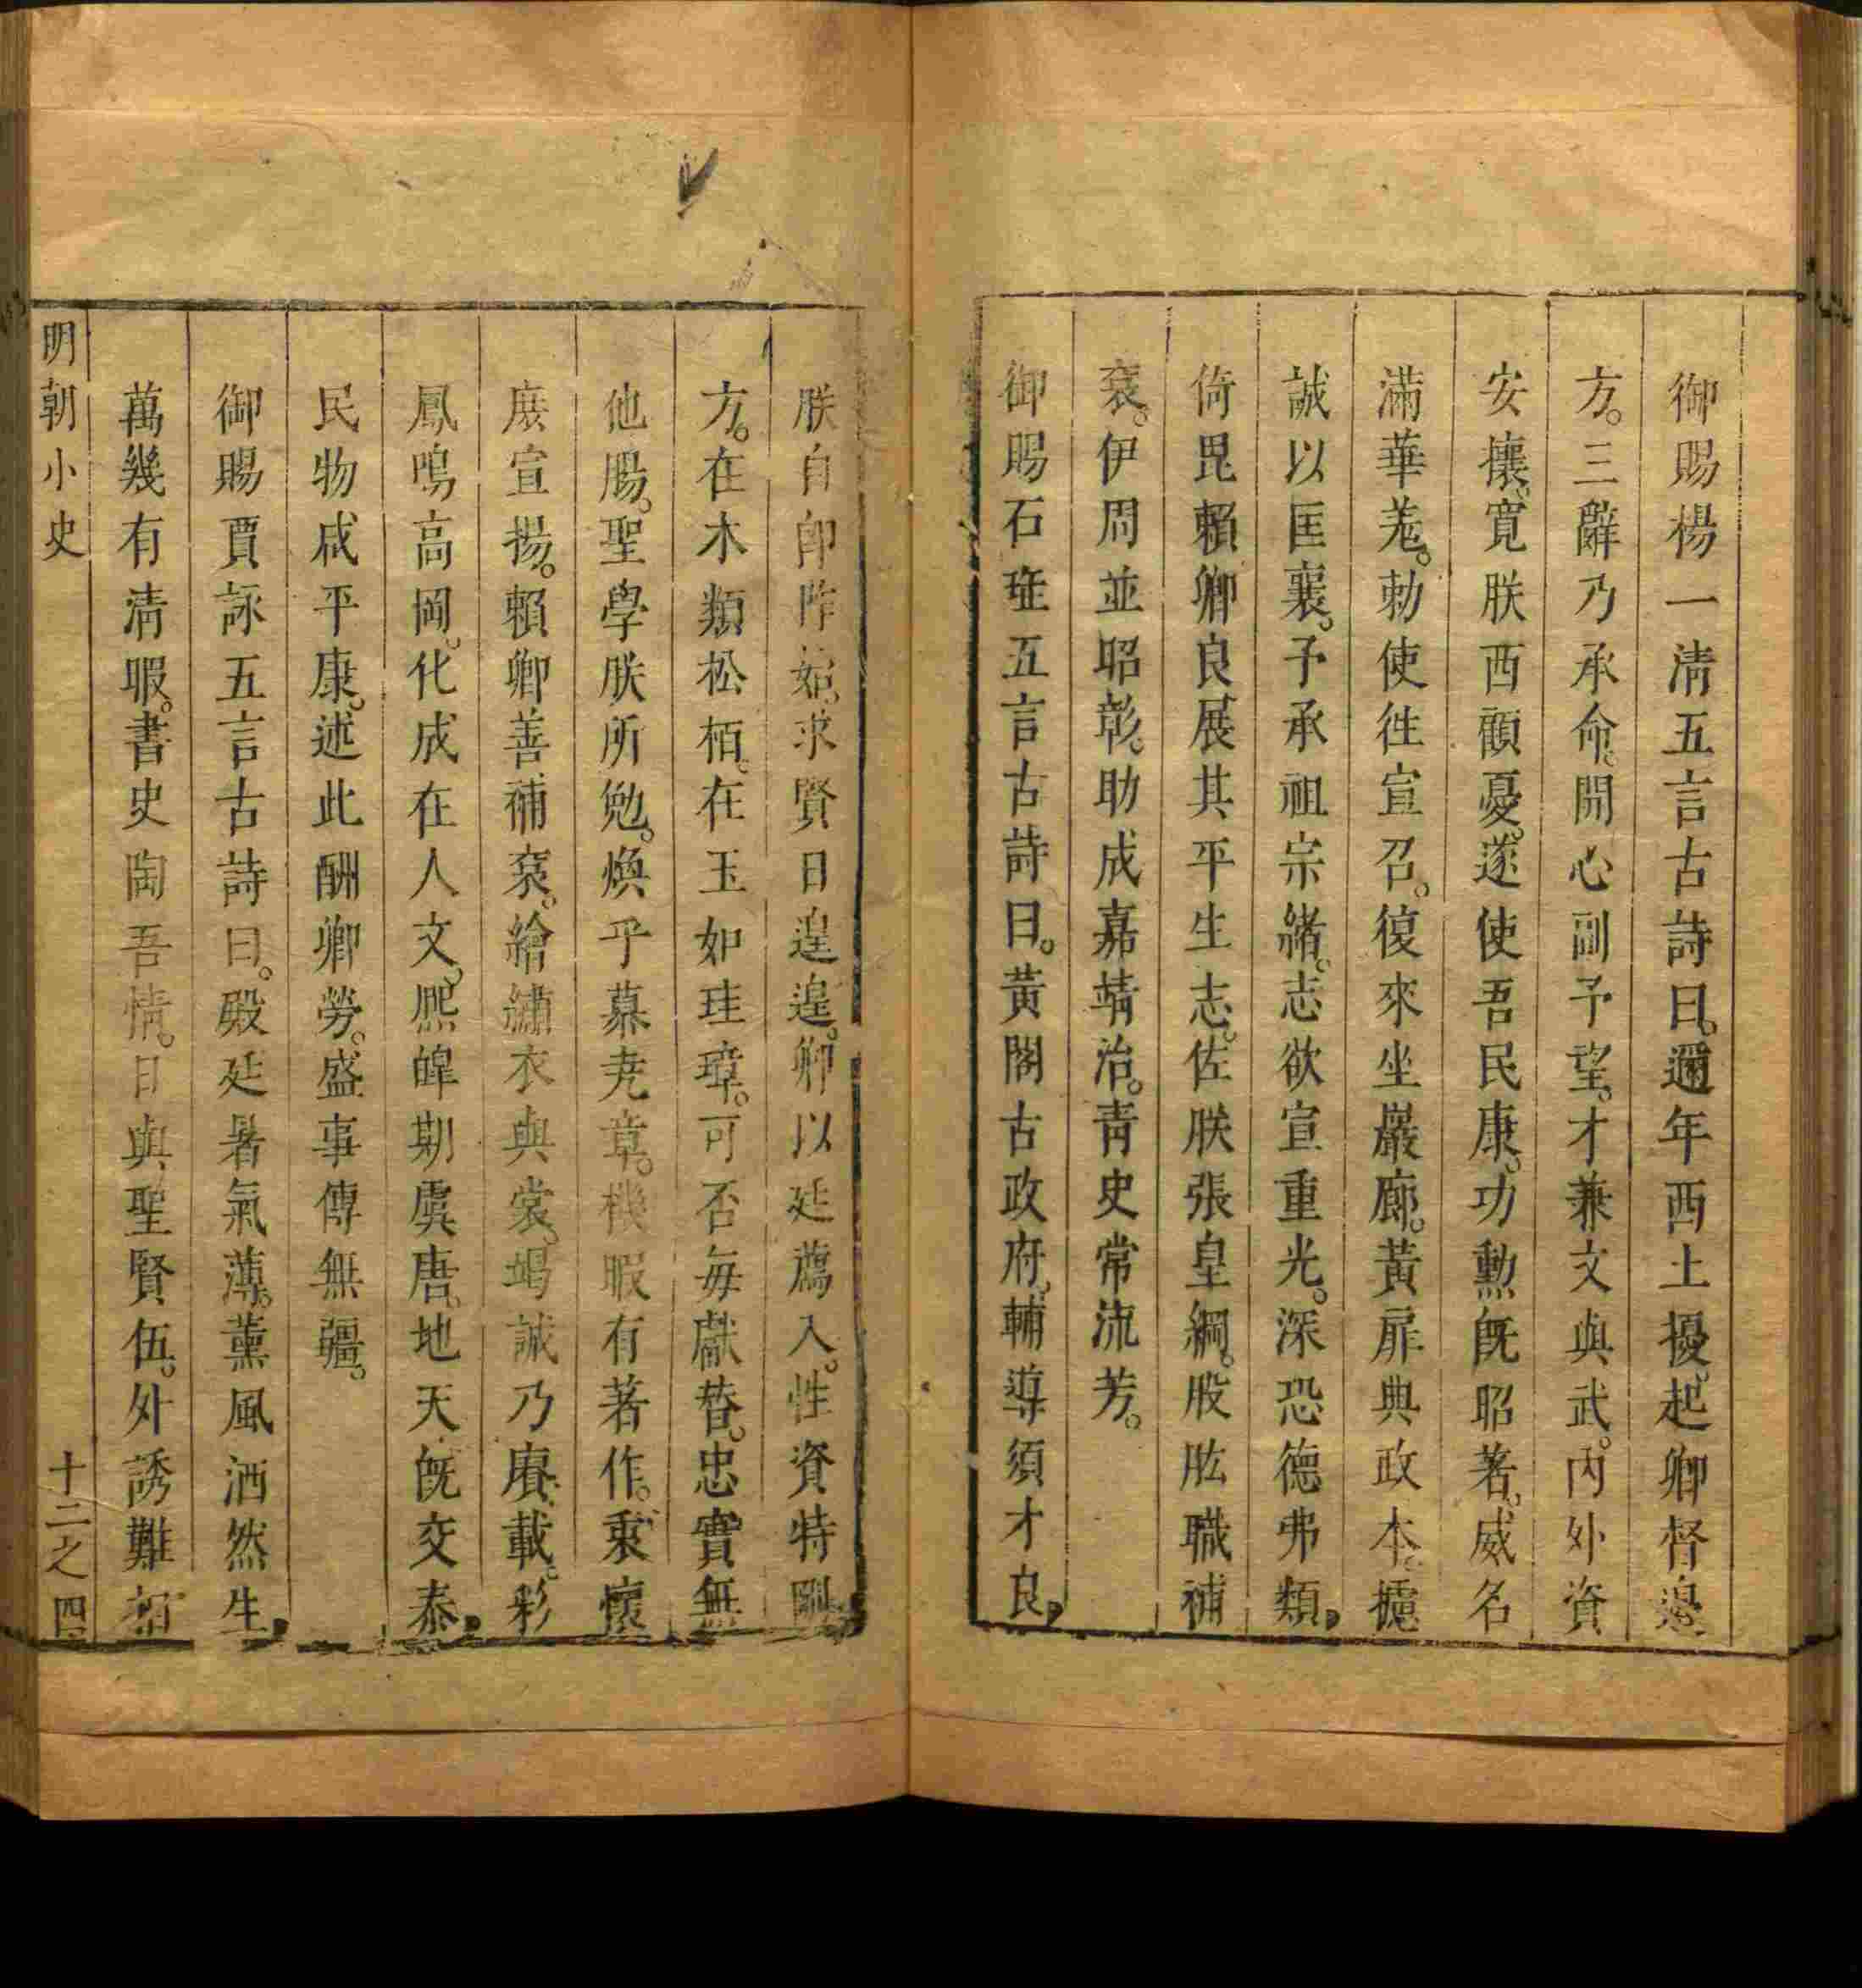 御賜楊一清五言古詩曰。邇年西土擾。起卿督邉
方。三辭乃承命。開心副予望。才兼文與武。内外資
安攘。寛朕西顧憂。遂使吾民康。功勲既昭著。威名
滿華羗。勅使徃宣召。復來坐巖廊。黄扉典政本。攄
誠以匡襄。予承祖宗緒。志欲宣重光。深恐德弗類。
倚毘賴卿良。展其平生志。佐朕張皇綱。股肱職補
衮。伊周並昭彰。助成嘉靖治。青史常流芳。
御賜石珤五言古詩曰。黄閣古政府。輔導須才良。
朕自卽阼始。求賢日遑遑。卿以廷薦入。性資特剛
方。在木類松栢。在玉如珪璋。可否每獻替。忠實無
他腸。聖學朕所勉。煥乎慕尭章。機暇有著作。秉懷
庶宣揚。賴卿善補衮。繪繡衣與裳。竭誠乃賡載。彩
鳳鳴高岡。化成在人文。熈皥期虞唐。地天旣交泰。
民物咸平康。述此酬卿勞。盛事傳無疆。
御賜賈詠五言古詩曰。殿廷暑氣薄。薰風洒然生。
萬幾有清暇。書史陶吾情。日與聖賢伍。外誘難
明朝小史
十二之四